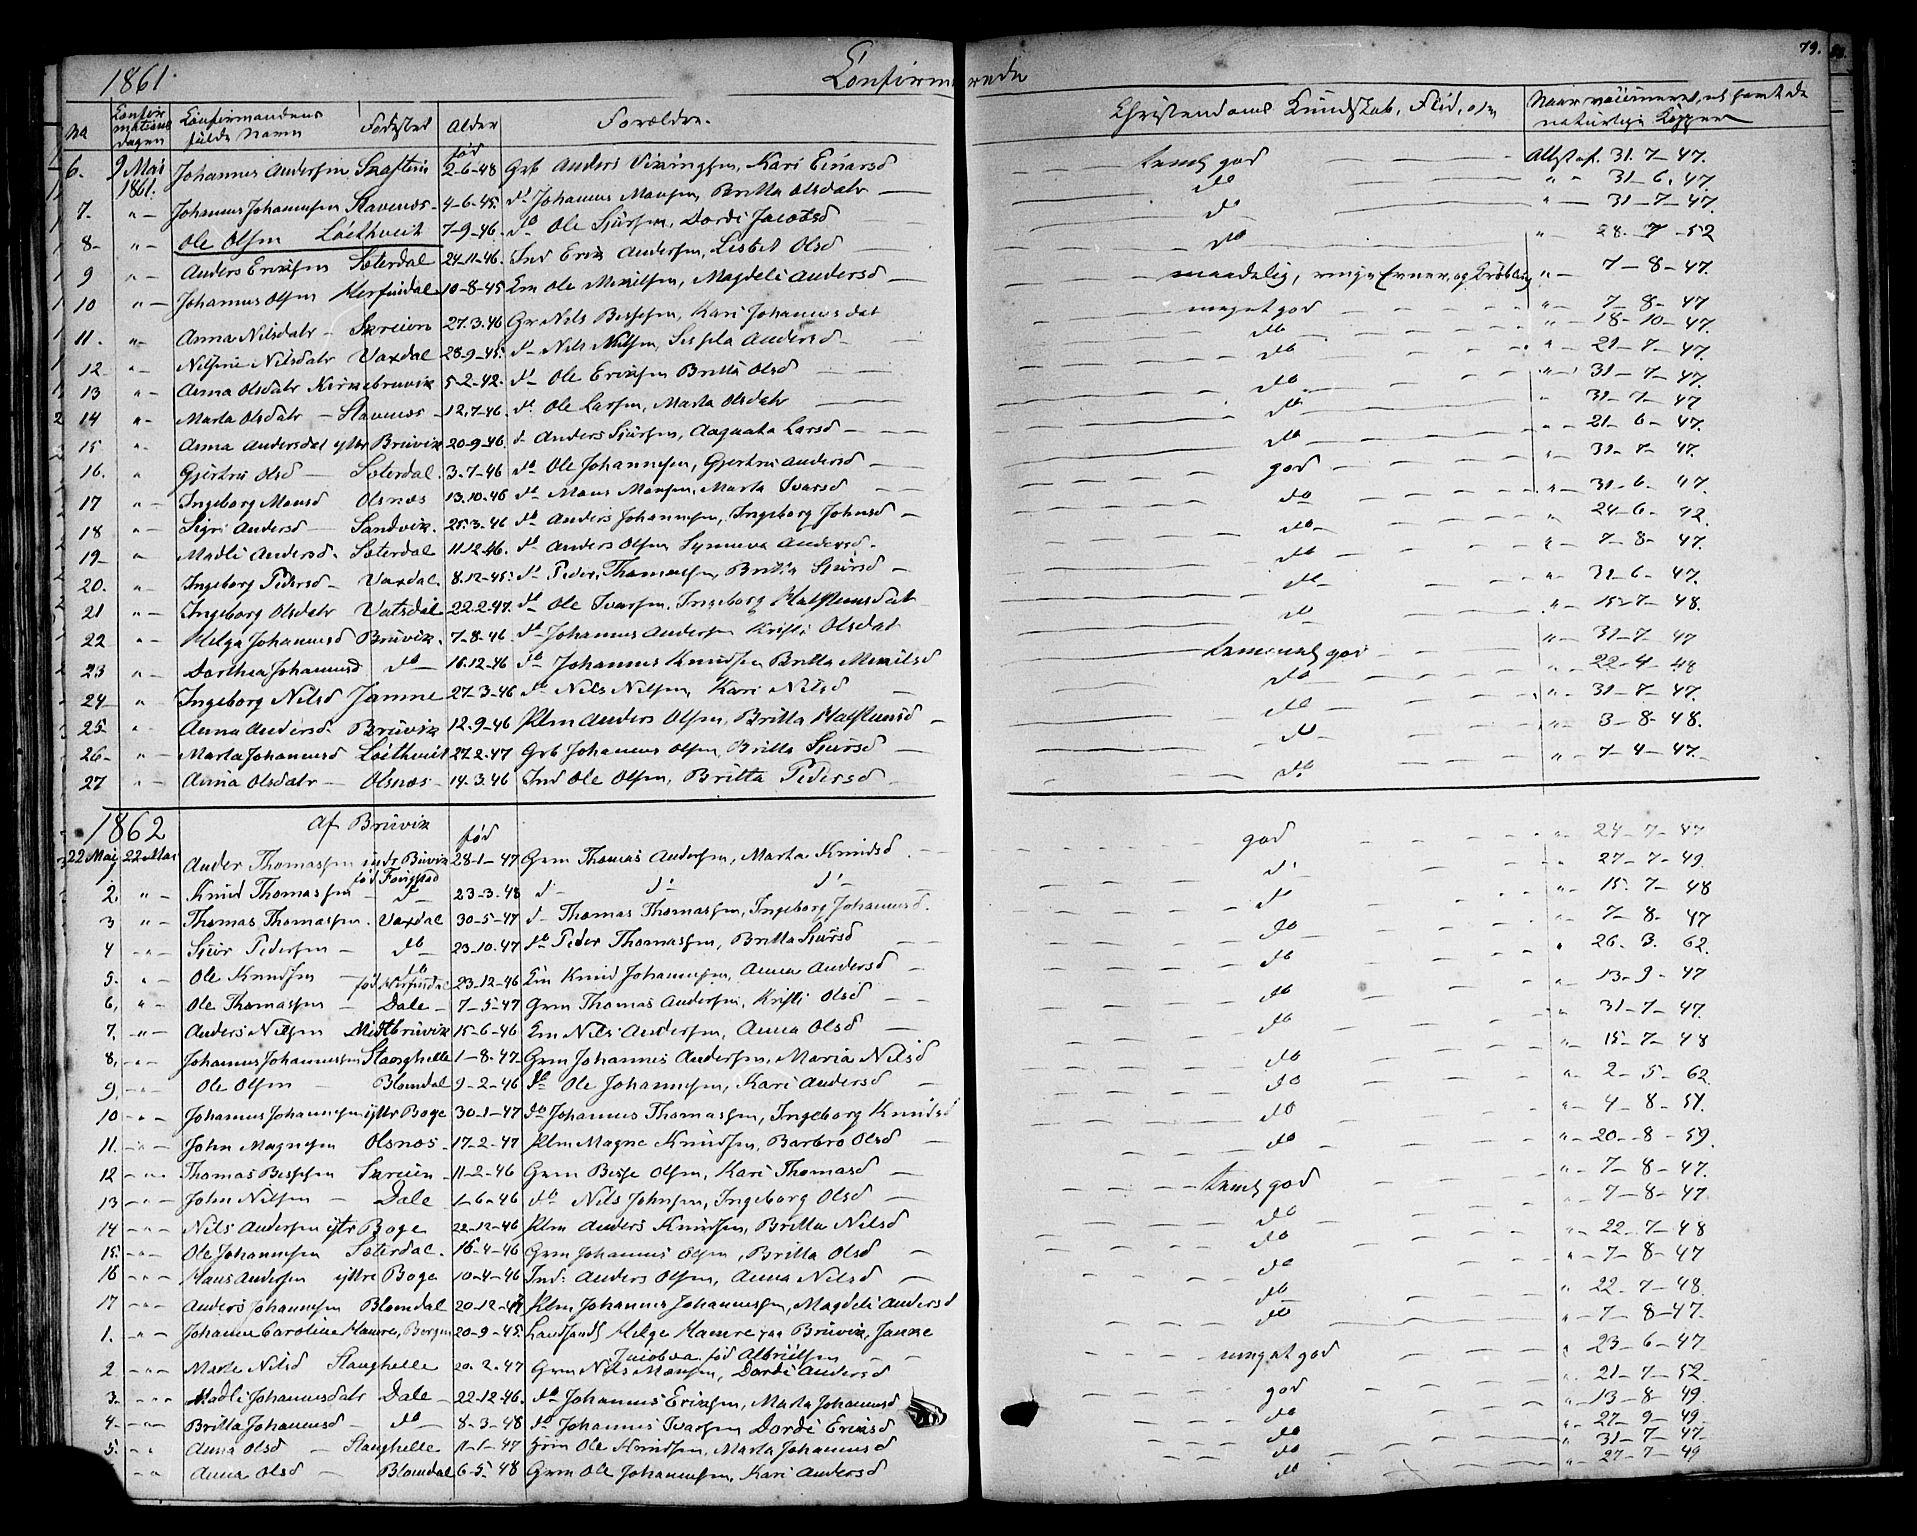 79.
1861. Confirmerede
No Confirmations dagen Confirmandens fulde Navn Fødested Alder Forældre. Christendoms Kundskab, Flid, Naar vaccineret, el havt de naturlige Kopper
6. 9 Mai 1861. Johannes Andersen født 2-6-48 Grb Anders Vikingsen, Kari Einarsd temel god Attest af. 31-7-47.
7- " - Johannes Johannesen Stavenæs 4-6-45. do Johannes Monsen, Britta Olsdatr do " - 31-6-47.
8- " - Ole Olsen Leithveit 7-9-46. do Ole Sjursen, Dordi Jacobsd do " - 31-7-47.
9 " - Anders Eriksen Sæterdal 24-11-46. Ind Erik Andersen, Lisbet Olsd do " - 28-7-52
10 " - Johannes Olsen Herfindal 10-8-45 Em Ole Mikilsen, Magdeli Andersd maadelig, ringe Evner, og " - 7-8-47.
11. " - Anna Nilsdatr Skreien 27.3.46 Gr Nils Bessesen, Kari Johannesdat meget god " - 7-8-47
12 " - Nilsine Nilsdatr Vaxdal 28-9-45. do Nils Nilsen, Andersd do " - 18-10-47.
13 " - Anna Olsdatr 5-2-42. do Ole Eriksen Britta Olsd do " - 21-7-47.
14 " - Marta Olsdatr Stavenæs 12.7-46 do Ole Larsen, Marta Olsdatr do " - 31-7-47.
15 " - Anna Andersdat yttr Bruvik 20-9-46. do Anders Sjursen, Aagaata Larsd do " - 31-7-47
16. " Gjertru Olsd Sæterdal. 3-7-46 do Ole Johannesen, Gjertru Andersd do " - 21-6-47.
17 " - Ingeborg Monsd Olsnæs 13.10-46 do Mons Monsen, Marta Ivarsd god 31-7-47.
18 " - Sigri Andersd Sandvik. 25.3-46 do Anders Johannesen, Ingeborg Johnsd do " - 31-6-47.
19- " Madli Andersd. Sæterdal 11.12.46. do Anders Olsen Synneva Andersd. do " 24-6-42.
20. " - Ingeborg Pedersd Vaxdal 8.12-45. do Peder Thomassen, Britta Sjursd do " - 7-8-47.
21 " - Ingeborg Olsdatr Vatsdal 22.2-47. do Ole Ivarsen, Ingeborg Halstensdat do " - 31-6-47.
22 " - Helga Johannesd Bruvik. 7-8-46 do Johannes Andersen Kristi Olsdat do " - 15-7-48.
23 " - Dorthea Johannesd do 16.12-46 do Johannes Knudsen Britta Mikilsd god " - 31-7-47
24 " Ingeborg Nilsd Jamne 27-3-46 do Nils Nilsen, Kari Nilsd do " - 22-4-48
25- " - Anna Andersd. Bruvik 12.9-46 Klm Anders Olsen, Britta Halstensd do " - 31-7-47.
26- " - Marta Johannesd Leithveit 27.2-47 Grb Johannes Olsen, Britta Sjursd do " - 3-8-48.
27 " - Anna Olsdatr Olsnæs 14.3.46 Ind Ole Olsen, Britta Pedersd do " - 7-4-47.
1862 Af Bruvik født
22 Mai Ander Thomassen indr Bruvik 28-1-47 Grm Thomas Andersen, Marta Knudsd god " - 24-7-47
2. " - Knud Thomassen do 23-3-48 do do do do " - 27-7-49.
3 " - Thomas Thomassen. Vaxdal 30-5-47 do Thomas Thomassen, Ingeborg Johannesd. do " - 15-7-48
4 " - Sjur Pedersen do 23.10.47 do Peder Thomassen, Britta Sjursd do " - 7-8-47
5. " - Ole Knudsen do født Herfindal 23-12-46 Em Knud Johannesen, Anna Andersd do " 26-3-62.
6, " - Ole Thomassen Dale 7-5-47 Grm Thomas Andersen, Kristi Olsd do " - 13-9-47
7. " - Anders Nilsen Midtbruvik 15-6-46 Em Nils Andersen, Anna Olsd do " - 31-7-47.
8, " - Johannes Johannessen Stanghelle 1-8-47 Grm Johannes Andersen, Maria Nilsd do " - 15-7-48
9, " - Ole Olsen Blomdal 9-2-46 do Ole Johannesen, Kari Andersd do " - 2-5-62.
10 " - Johannes Johannesen yttr Boge 30-1-47 do Johannes Thomassen, Ingeborg Knudsd do " - 4-8-51.
11. " - John Magnesen Olsnæs. 17-2-47 Klm Magne Knudsen, Barbro Olsd do " - 20-8-59.
12 " - Thomas Bessesen Skreien 11-2-46 Grm Besse Olsen, Kari Thomasd temel god " - 7-8-47.
13 " - John Nilsen Dale 1-6-46 do Nils Johnsen, Ingeborg Olsd do " - 7-8-47.
14 " - Nils Andersen ytr Boge 22-12-46 Klm Anders Knudsen, Britta Nilsd do " 22-7-48
15. " - Ole Johannesen Sæterdal. 16-4-46 Grm Johannes Olsen, Britta Olsd do " - 7-8-47
16 " - Hans Andersen yttre Boge 10-4-46 Ind: Anders Olsen, Anna Nilsd do " 22-7-48.
17 " - Anders Johannesen Blomdal 20-12-47 Klm Johannes Johannessen, Magdeli Andersd do " - 7-8-47.
1. " - Johanne Caroline Hamre, Bergen 20-9-45. Landhandl Helge Hamre paa Bruvik, Janne Jacobea født Albrictsen meget god " 23-6-47
2 " - Marte Nilsd Stanghelle 20.2-47 Grm Nils Monsen, Dordi Andersd god " 21-7-52
3. " - Madli Johannesdatr Dale 22-12-46. do Johannes Eriksen, Marta Johannesd do " - 13-8-49.
4- " - Britta Johannesd do 8-3-48 do Johannes Ivarsen Dordi Eriksd do " 27-9-49.
5. " Anna Olsd Stanghelle 1-1-47 Ole Knudsen, Marta Johannesd do " 31-7-47.
" Anna Olsd Blomdal 6-5-48 Grm Ole Johannesen, Kari Andersd do " - 27-7-49